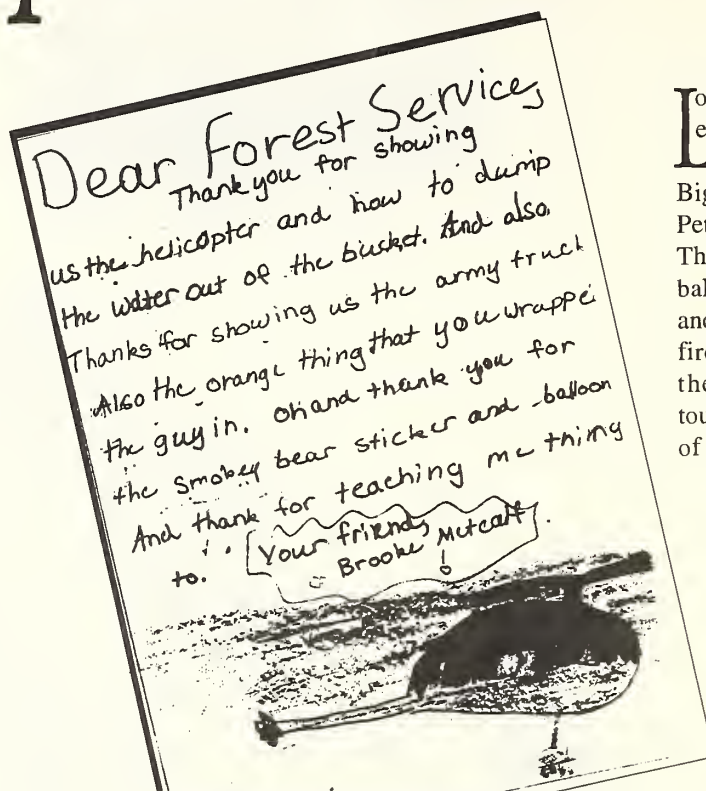 Dear Forest Service,
Thank you for showing
us the helicopter and how to dump
the water out of the bucket. And also,
Thanks for showing us the army truck
Also the orange thing that you wrappe
the guy in. Oh and thank you for
the smokey bear sticker and balloon
And thank for teaching me thing
to.
Your friend,
Brooke Metcalf
Big
Per
Th
bal
and
fire
the
tou
of